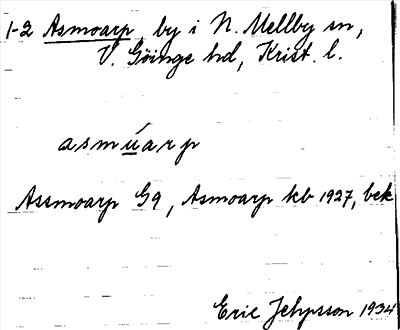 1-2 Asmoarp, by i N. Mellby sn,
V. Göinge hd, Krist. l.
asmúarp
Assmoarp G9, Asmoarp kb 1927, bek
Eric Jepsson 1934